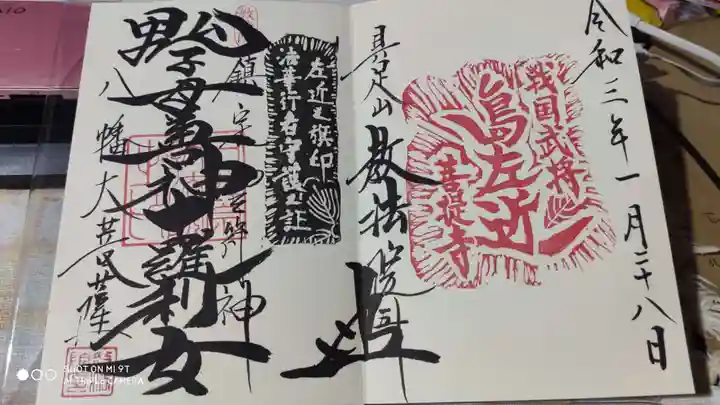 令和三年一月二十八日
戦国武将
島左近
菩提寺
具足山
教法院
左近之旗印
法華行者守護之証
鎮守
神
鬼子母善神十羅刹女
八幡大菩薩
SHOT ON MI 9T
AI TRIPLE CAMERA